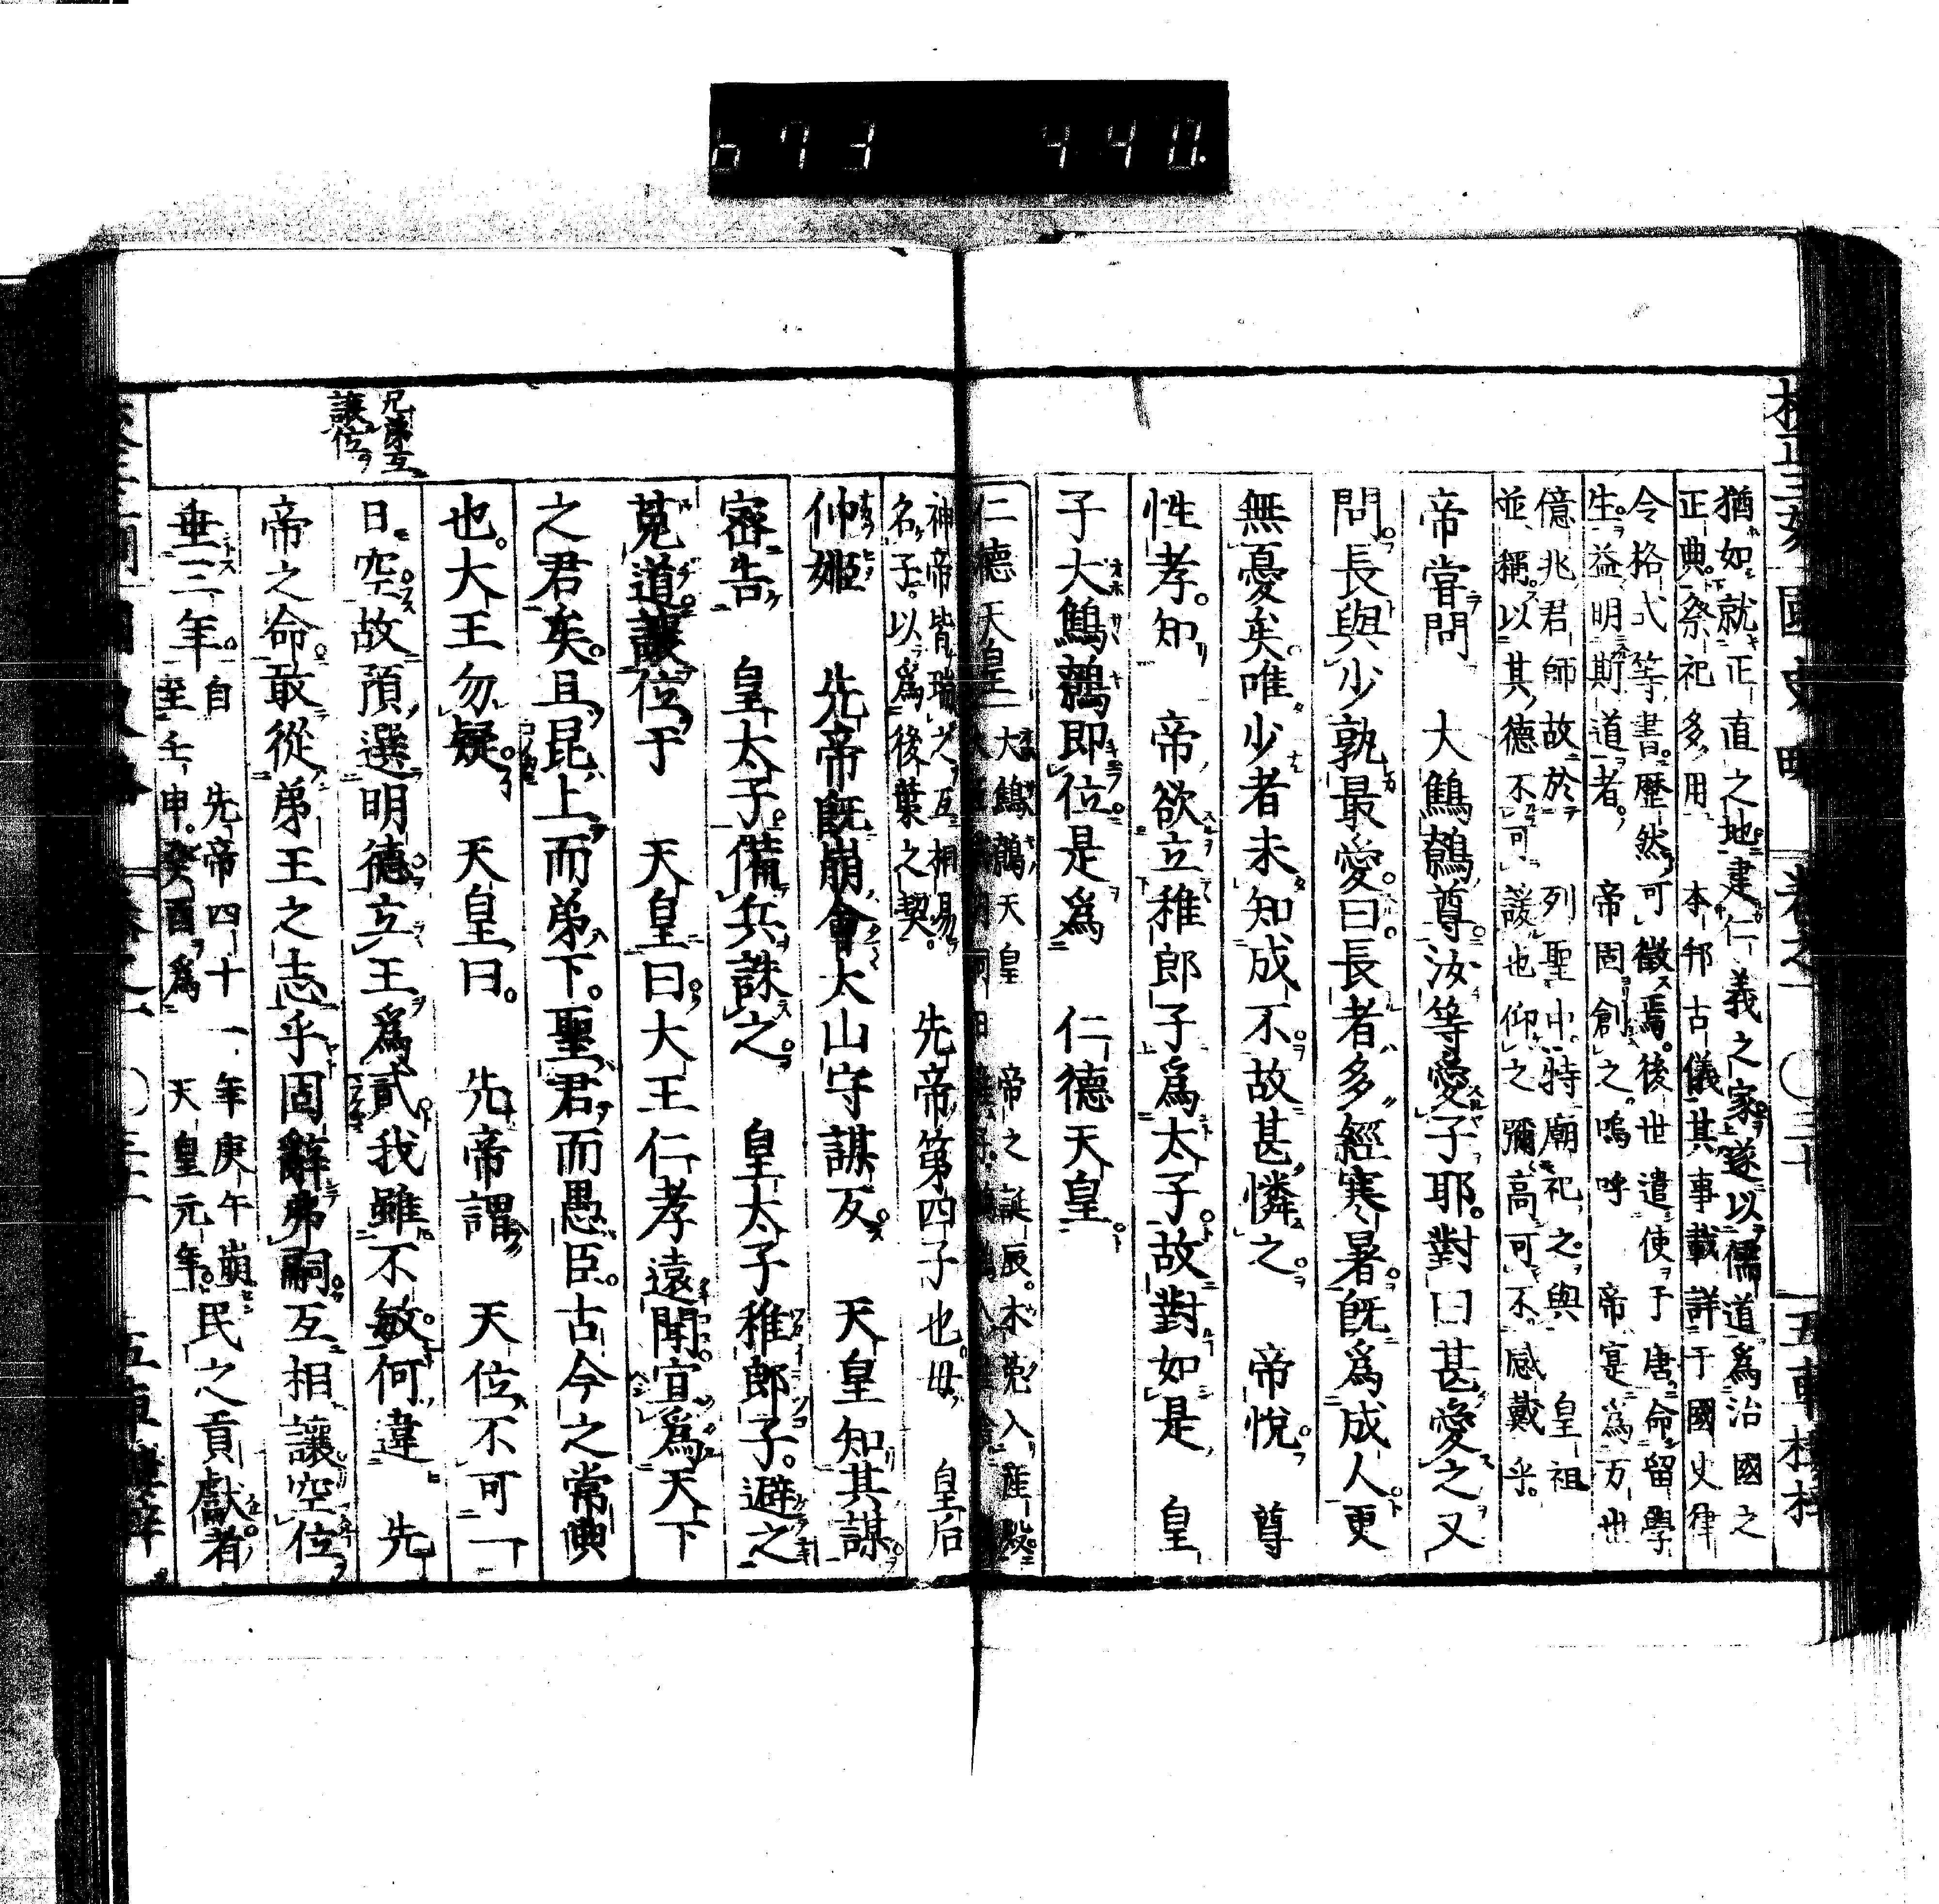 673 440.
校正王代一國史略 卷之一 〇三十 五車樓梓
猶如就正直之地建仁義之家遂以儒道爲治國之
正典。祭祀多用 本邦古儀其事載詳于國史律
令格式等書。歷然可徵焉。後世遣使于唐命留學
生。益明斯道者。 帝固創之。嗚呼 帝寔爲万世
億兆君師故於 列聖中特廟祀之。與 皇祖
並稱以其德不可諼也仰之彌高可不感戴乎。
帝嘗問 大鷦鷯尊。汝等愛子耶。對曰甚愛之又
問。長與少孰最愛。曰。長者多經寒暑。旣爲成人更
無憂矣。唯少者未知成不。故甚憐之。 帝悅。 尊
性孝。知 帝欲立稚郎子爲太子。故對如是 皇
子大鷦鷯即位。是爲 仁德天皇。
仁德天皇 大鷦鷯天皇 帝之誕辰。木菟入產殿
神帝皆瑞之互相易
名子。以爲後葉之契。 先帝第四子也。母 皇后
仲姬 先帝旣崩會大山守謀反。 天皇知其謀
密告 皇太子。備兵誅之。 皇太子稚郎子。避之
菟道讓位于 天皇曰。大王仁孝遠聞。宜爲天下
之君矣。且昆上而弟下。聖君而愚臣。古今之常典
也。大王勿疑。 天皇曰。 先帝謂天位不可一
日空。故預選明德立王爲貳我雖不敏何違 先
帝之命。敢從弟王之志乎固辭弗嗣。互相讓空位
垂三年。自 先帝四十一年庚午崩
至壬申。癸酉爲 天皇元年。民之貢獻者
兄弟互
讓位